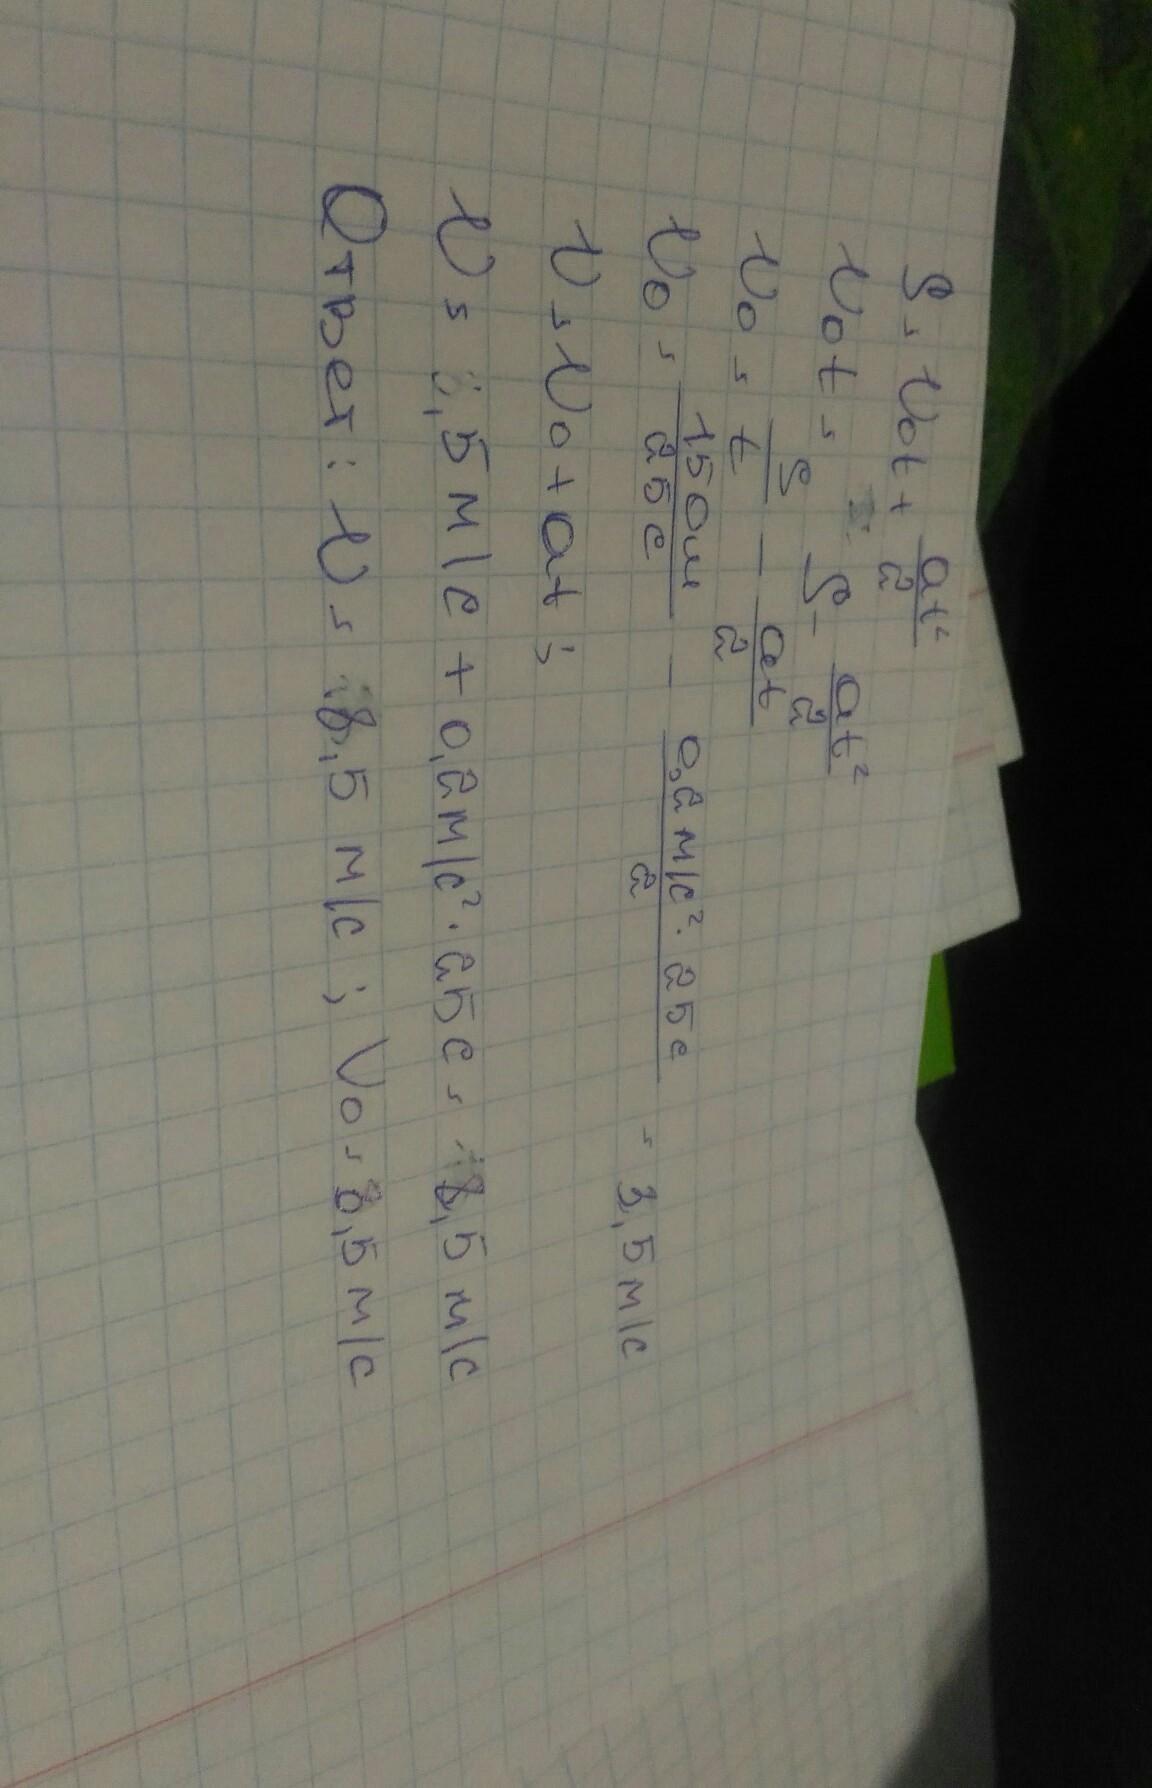 S = υ₀t + at²/2
υ₀t = S - at²/2
υ₀ = S/t - at/2
υ₀ = 150м/25с - 0,2м/с²·25с/2 = 3,5м/с
υ = υ₀ + at;
υ = ,5м/с + 0,2м/с²·25с = 8,5м/с
Ответ: υ = 8,5м/с; V₀ = 3,5м/с